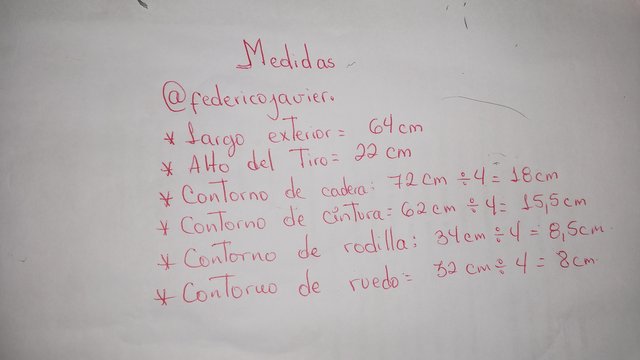 Medidas
@federicojavier.
* Largo exterior = 64 cm
* Alto del Tiro = 22 cm
* Contorno de cadera: 72 cm ÷ 4 = 18 cm
* Contorno de cintura = 62 cm ÷ 4 = 15,5 cm
* Contorno de rodilla: 34 cm ÷ 4 = 8,5 cm.
* Contorno de ruedo = 32 cm ÷ 4 = 8 cm